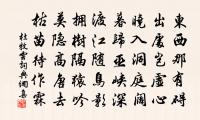 東西那有礙
出處豈虛心
曉入洞庭闊
暮歸巫峽深
渡江隨鳥影
擁樹隔猿吟
莫隱高唐去
枯苗待作霖
杜牧雲詞典網集